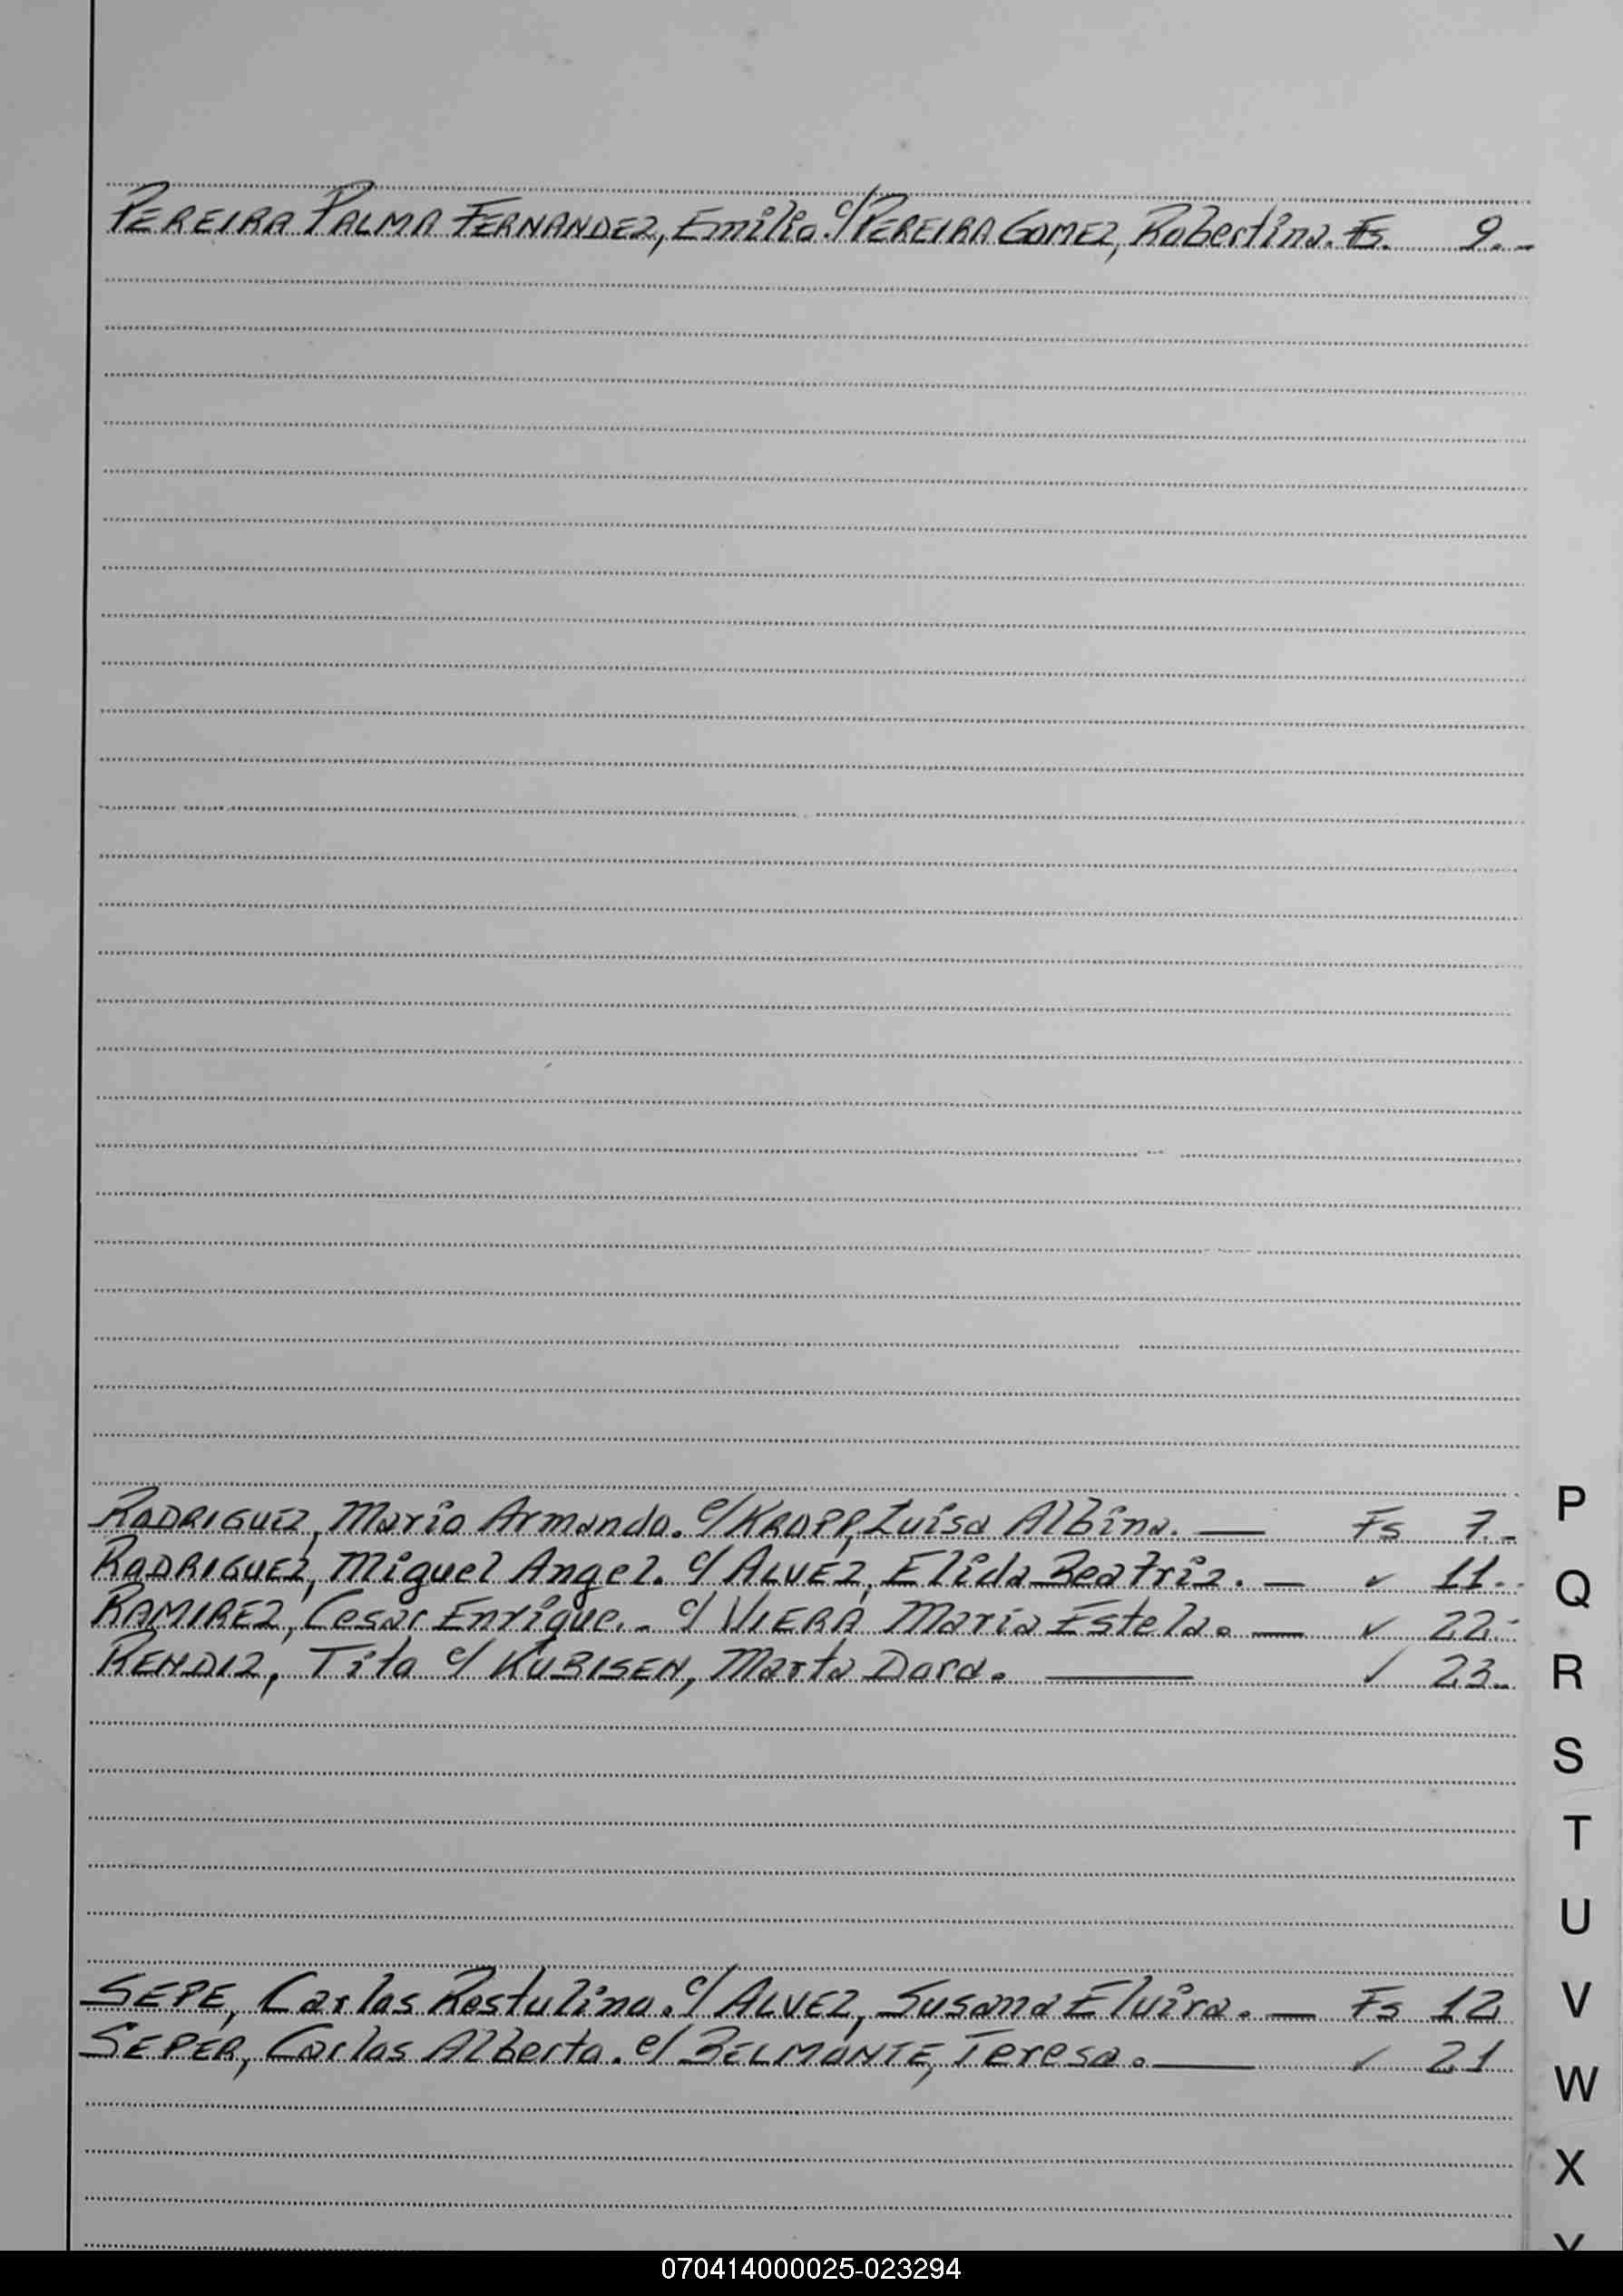 PEREIRA PALMA FERNANDEZ, Emilio. c/ PEREIRA GOMEZ, Robertina. Fs. 9.-
RODRIGUEZ, Mario Armando. c/ KROPP, Luisa Albina. — Fs 7.-
RODRIGUEZ, Miguel Angel. c/ ALVEZ, Elida Beatriz. — ✓ 11.-
RAMIREZ, Cesar Enrique.- c/ VIERA Maria Estela. — ✓ 22.-
RENDIZ, Tito c/ KUBISEN, Marta Dora. — ✓ 23.-
SEPE, Carlos Rostulino. c/ ALVEZ, Susana Elvira. — Fs 12
SEPER, Carlos Alberto. c/ BELMONTE, Teresa. — ✓ 21
P
Q
R
S
T
U
V
W
X
Y
070414000025-023294